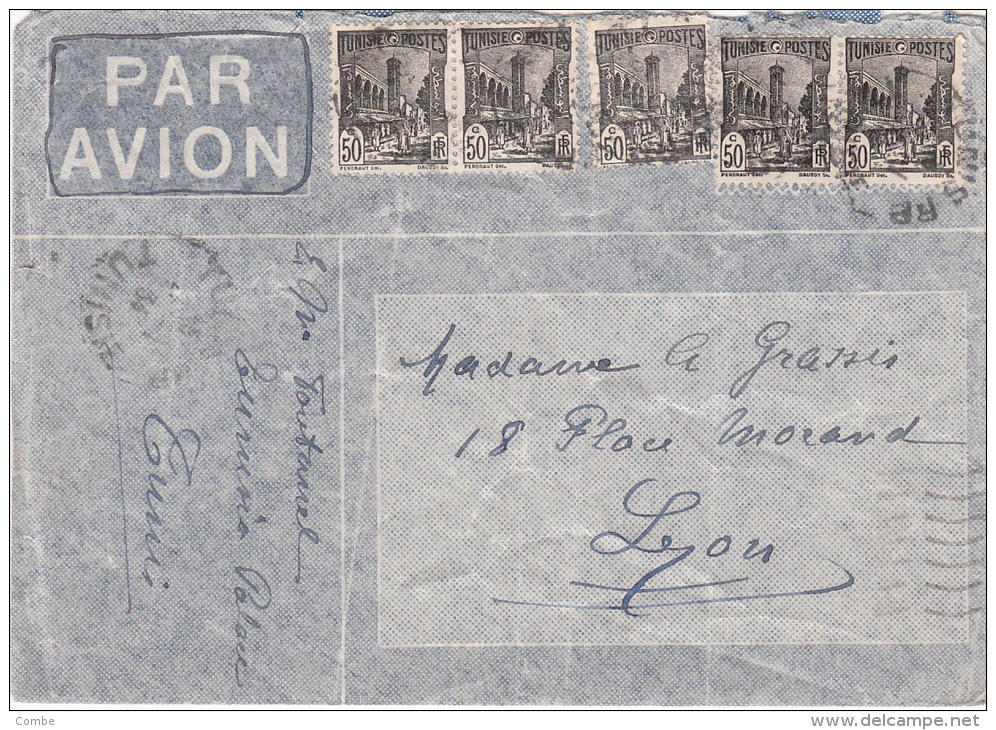 PAR
AVION
TUNISIE POSTES TUNISIE POSTES TUNISIE POSTES TUNISIE POSTES TUNISIE POSTES
50 c RF 50 c RF 50 c RF 50 c RF 50 c RF
PERDRAUT Del. DAUSSY Sc. PERDRAUT Del. DAUSSY Sc. PERDRAUT Del. DAUSSY Sc. PERDRAUT Del. DAUSSY Sc.
TUNIS RP
Madame G Grassis
18 Place Morand
Lyon
Fontanel
Palace
Tunis
TUNIS
Combe
www.delcampe.net